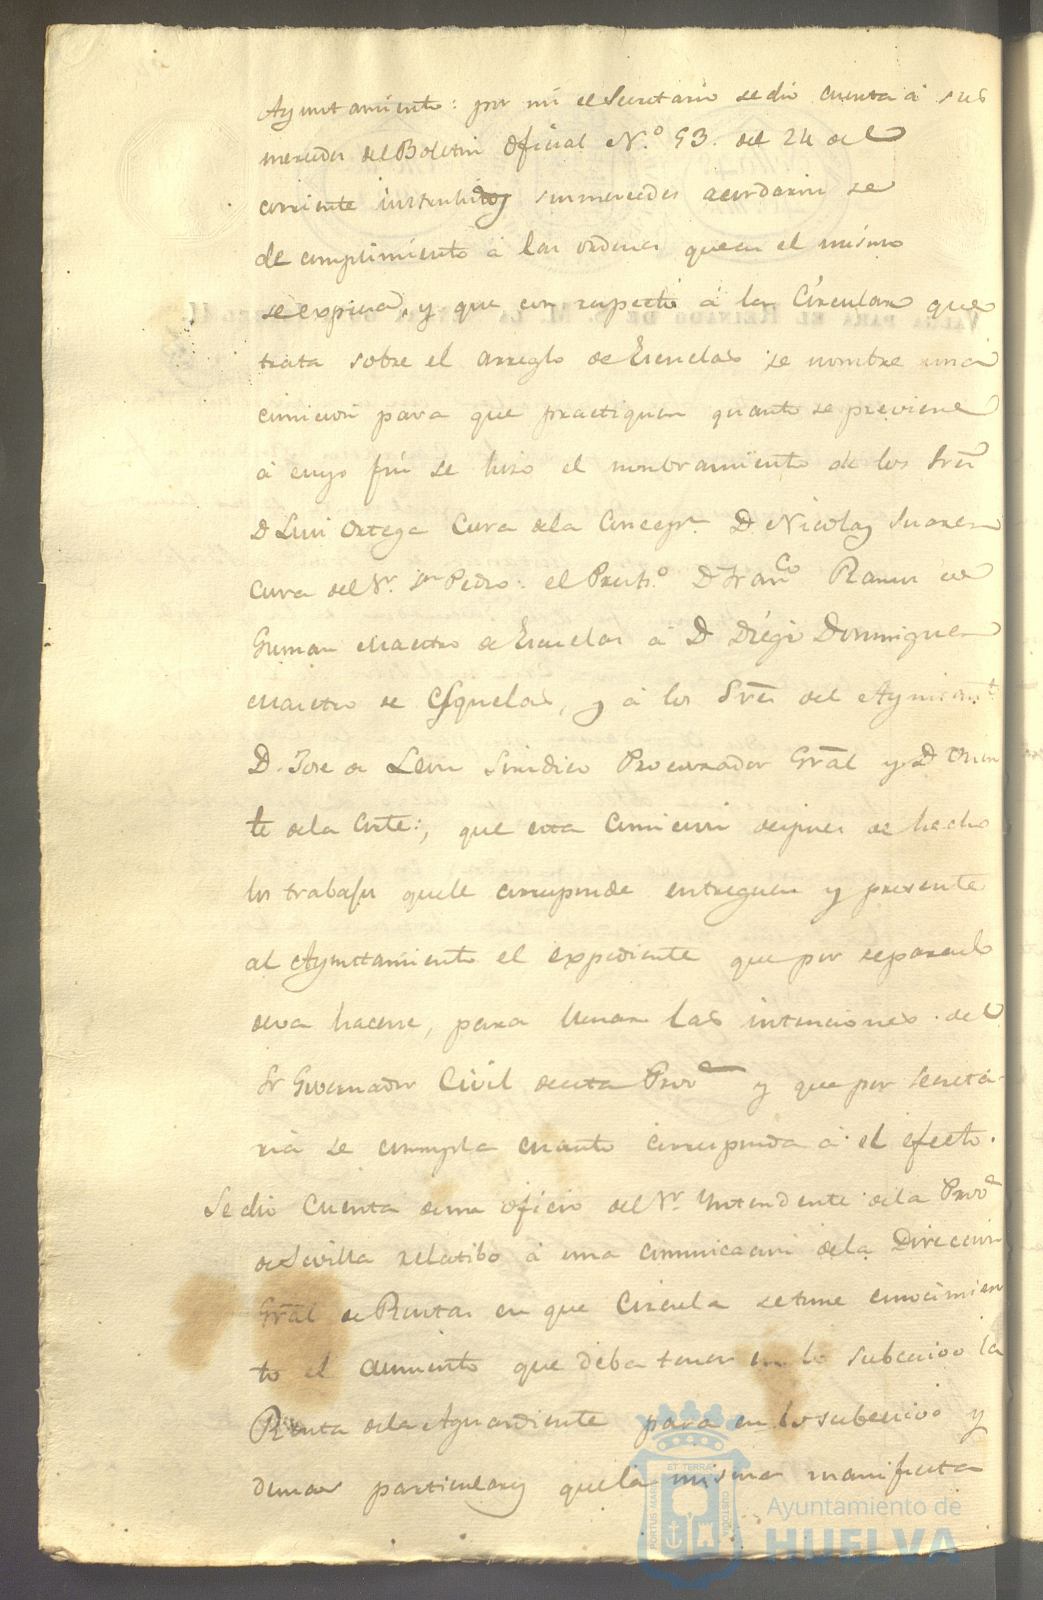 Ayunttamiento: por mi el Secretario se dio cuenta á sus
mercedes del Boletin Oficial N.º 53. del 24 del
corriente sus mercedes acordaron se
de cumplimiento á las ordenes que en el mismo
se expresa, y que con respecto á la Circular que
trata sobre el arreglo de Escuelas se nombre una
comicion para que practiquen quanto se previene
á cuyo fin se hizo el nombramiento de los Sres
D Luis Ortega Cura dela Concepn D Nicolas Suarez
Cura del Sr. Sn Pedro: el Presb.º D Franco Ramos de
Gusman Maestro de Escuelas á D Diego Dominguez
Maestro de Esquelas, y á los Sres del Ayuntamt
D. Jose de Leon Sindico Procurador Gral y D
te dela Corte:, que esta Comicion despues de hecho
los trabajos quele corresponde entreguen y presente
al Ayunttamiento el expediente que por separado
deva hacerse, para llenar las intenciones del
Sr Governador Civil desta Prova y que por secreta-
ria se cumpla cuanto corresponda á el efecto.
Se dio Cuenta de un oficio del Sr. Yntendente dela Prova
de Sevilla relatibo á una comunicacion dela Direccion
Gral de Rentas en que Circula se tome conocimien
to el aumento que deba tener en lo subcecivo la
Renta dela Aguardiente para en lo subcecivo y
demas particulares quela misma manifiesta
VALGA PARA EL REINADO DE S. M. LA
PORTUS MARIS ET TERRAE CUSTODIA
Ayuntamiento de
HUELVA